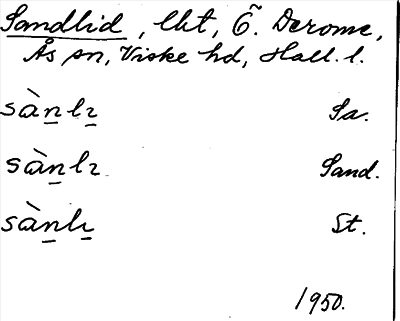 Sandlid, lht, Ö. Derome,
Ås sn, Viske hd, Hall. l.
sàṉlɩ̱ Sa.
sàṉlɩ Sand.
sàṉlɩ̱ St.
1950.